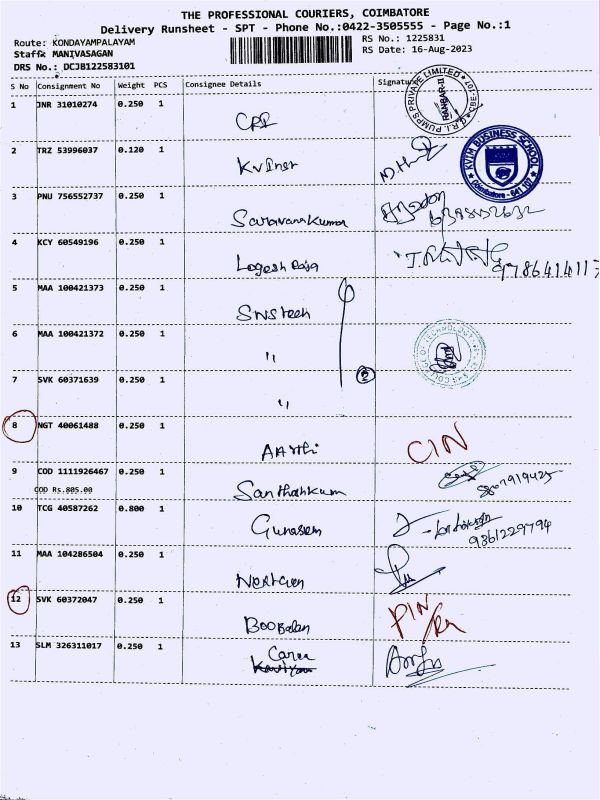 THE PROFESSIONAL COURIERS, COIMBATORE
Delivery Runsheet - SPT - Phone No.:0422-3505555 - Page No.:1
Route: KONDAYAMPALAYAM
RS No.: 1225831
Staff: MANIVASAGAN
RS Date: 16-Aug-2023
DRS No.: DCJB122583101
S No Consignment No Weight PCS Consignee Details Signature
1 JNR 31010274 0.250 1
PUMPS PRIVATE LIMITED
2 TRZ 53996037 0.120 1
KVIMER
KVIM BUSINESS SCHOOL
Coimbatore - 641 107
3 PNU 756552737 0.250 1
Saravana Kumar
4 KCY 60549196 0.250 1
Logesh Raja
5 MAA 100421373 0.250 1
SNS tech
6 MAA 100421372 0.250 1
"
COLLEGE OF TECHNOLOGY
7 SVK 60371639 0.250 1
2
"
8 NGT 40061488 0.250 1
AArthi CIN
9 COD 1111926467 0.250 1
COD Rs.805.00
10 TCG 40587262 0.800 1
9361229794
11 MAA 104286504 0.250 1
12 SVK 60372047 0.250 1
Boobalan PIN
13 SLM 326311017 0.250 1